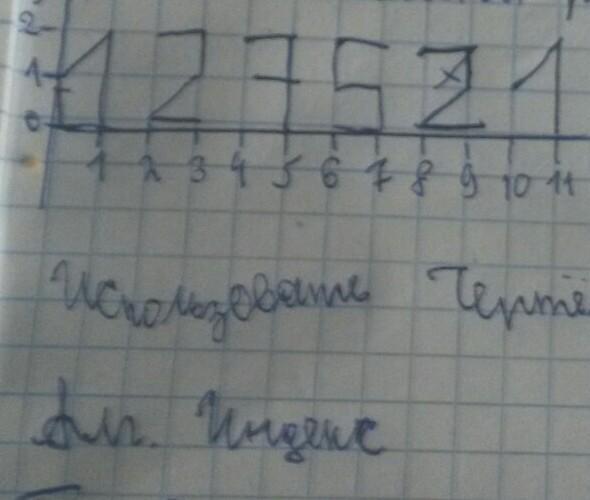 2
1 1 2 7 5 2 1
0
1 2 3 4 5 6 7 8 9 10 11
Использовать Чертё
Алг. Индекс